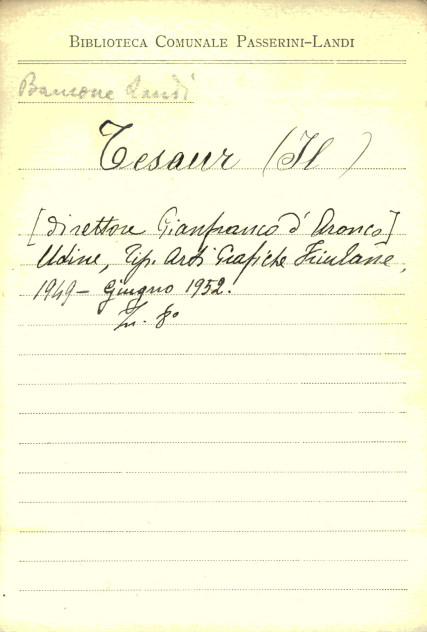 BIBLIOTECA COMUNALE PASSERINI-LANDI
Landi
Tesaur (Il)
[direttore Gianfranco d'Aronco]
Udine, Tip. Arti Grafiche Friulane,
1949- Giugno 1952.
In. 8°